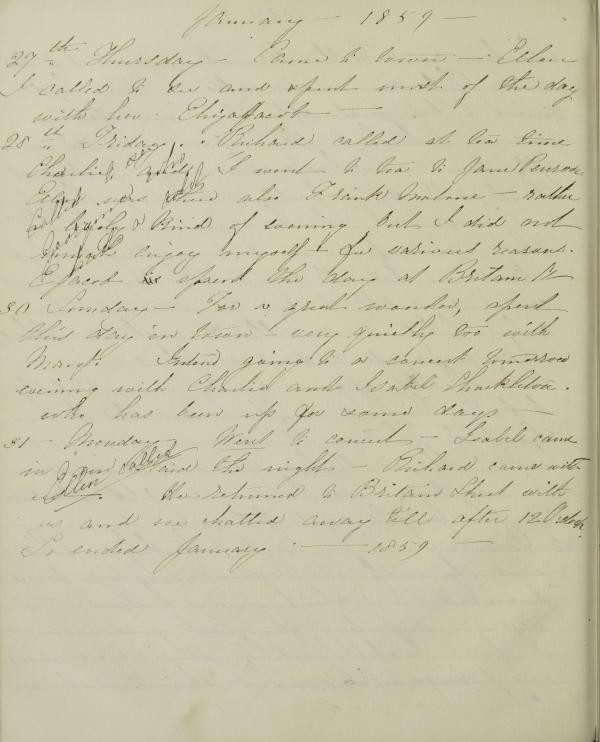 January — 1859 —
27th Thursday — Came to town — Ellen
I called to see and spent most of the day
with her. Eliza Jacob —
28th Friday. Richard called at tea time
Charlie, and I went to tea to Jane Penrose
Ellen was there also Frank Malone — rather
lively kind of evening but I did not
much enjoy myself — for various reasons.
E Jacob spent the day at Britain St
30 Sunday — For a great wonder, spent
this day in town — very quietly too with
Margt. Intend going to a concert tomorrow
evening with Charlie and Isabel Shackleton.
who has been up for some days —
31 — Monday Went to concert — Isabel came
in and the night — Richard came with
Ellen called
us. He returned to Britain Street with
us and we chatted away till after 12 Oclock.
So ended January — 1859 —